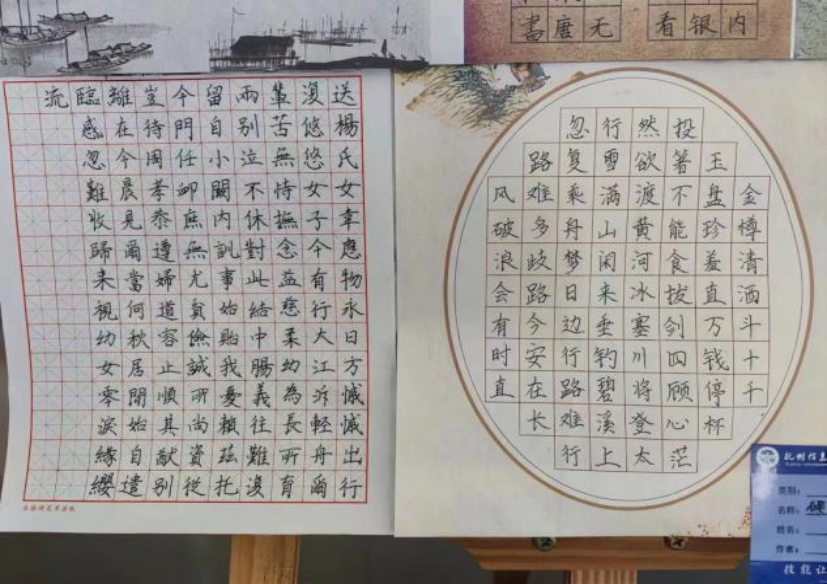 書唐无
看银内
送楊氏女韋應物永日方慽慽出行
復悠悠女子今有行大江泝輕舟爾
輩苦無恃撫念益慈柔幼為長所育
兩别泣不休對此結中腸義往難復
留自小闕内訓事始貽我憂賴兹托
今門任卹庶無尤貧儉誠所尚資從
豈待周孝恭遵婦道容止順其猷别
離在今晨見爾當何秋居閒始自遣
臨感忽難收歸来視幼女零淚緣纓
流
金樽清酒斗十千
玉盘珍羞直万钱停杯
投箸不能食拔剑四顾心茫
然欲渡黄河冰塞川将登太
行雪满山闲来垂钓碧溪上
忽复乘舟梦日边行路难行
路难多歧路今安在长
风破浪会有时直
杭州信息
类别：
名称：硬
姓名：
作者：
技能让